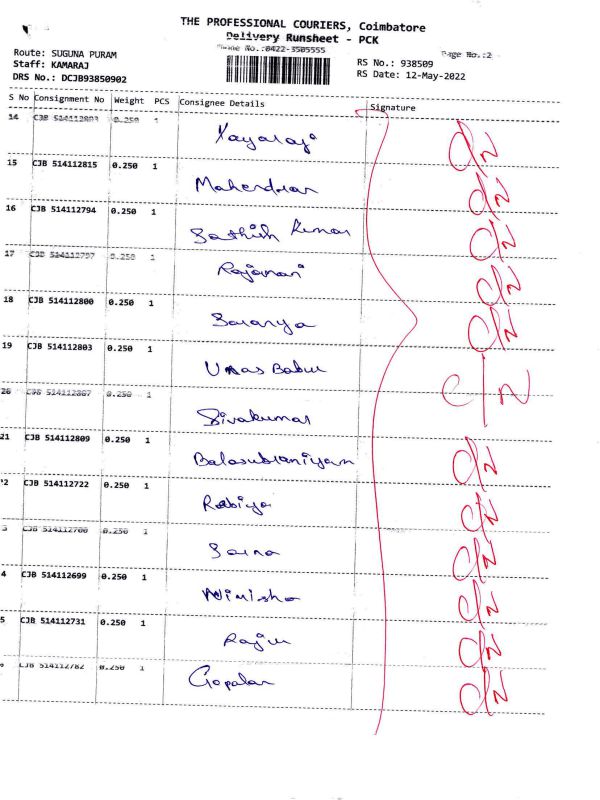 THE PROFESSIONAL COURIERS, Coimbatore
Delivery Runsheet - PCK
Phone No.:0422-3505555
Page No.:2
Route: SUGUNA PURAM
Staff: KAMARAJ
DRS No.: DCJB93850902
RS No.: 938509
RS Date: 12-May-2022
S No Consignment No Weight PCS Consignee Details Signature
14 CJB 0.250 1
15 CJB 514112815 0.250 1 Mahendran
16 CJB 514112794 0.250 1 Sathish Kumar
17 CJB 514112797 0.250 1
18 CJB 514112800 0.250 1 Saranya
19 CJB 514112803 0.250 1 Babu
CJB 0.250 1 Sivakumar
21 CJB 514112809 0.250 1 Balasubramiyam
2 CJB 514112722 0.250 1 Rabiya
3 CJB 0.250 1
4 CJB 514112699 0.250 1 Nimisha
5 CJB 514112731 0.250 1 Rajiu
CJB 514112782 0.250 1 Gopalan